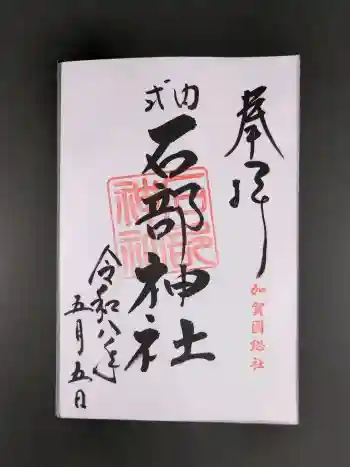 奉拝
加賀國総社
式内
石部神社
石部神社
令和八年
五月五日